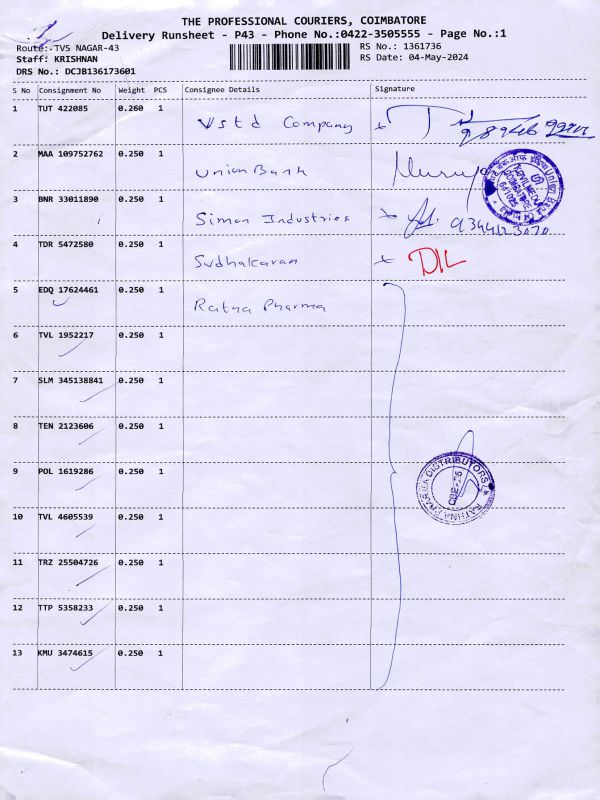 THE PROFESSIONAL COURIERS, COIMBATORE
Delivery Runsheet - P43 - Phone No.:0422-3505555 - Page No.:1
Route: TVS NAGAR-43 RS No.: 1361736
Staff: KRISHNAN RS Date: 04-May-2024
DRS No.: DCJB136173601
S No Consignment No Weight PCS Consignee Details Signature
1 TUT 422085 0.260 1 Vstd Company
2 MAA 109752762 0.250 1 Union Bank
3 BNR 33011890 0.250 1 Simon Industries
4 TDR 5472580 0.250 1 Sudhakaran DIL
5 EDQ 17624461 0.250 1 Ratna Pharma
6 TVL 1952217 0.250 1
7 SLM 345138841 0.250 1
8 TEN 2123606 0.250 1
9 POL 1619286 0.250 1
RATHNA PHARMA DISTRIBUTORS
CBE-25
10 TVL 4605539 0.250 1
11 TRZ 25504726 0.250 1
12 TTP 5358233 0.250 1
13 KMU 3474615 0.250 1